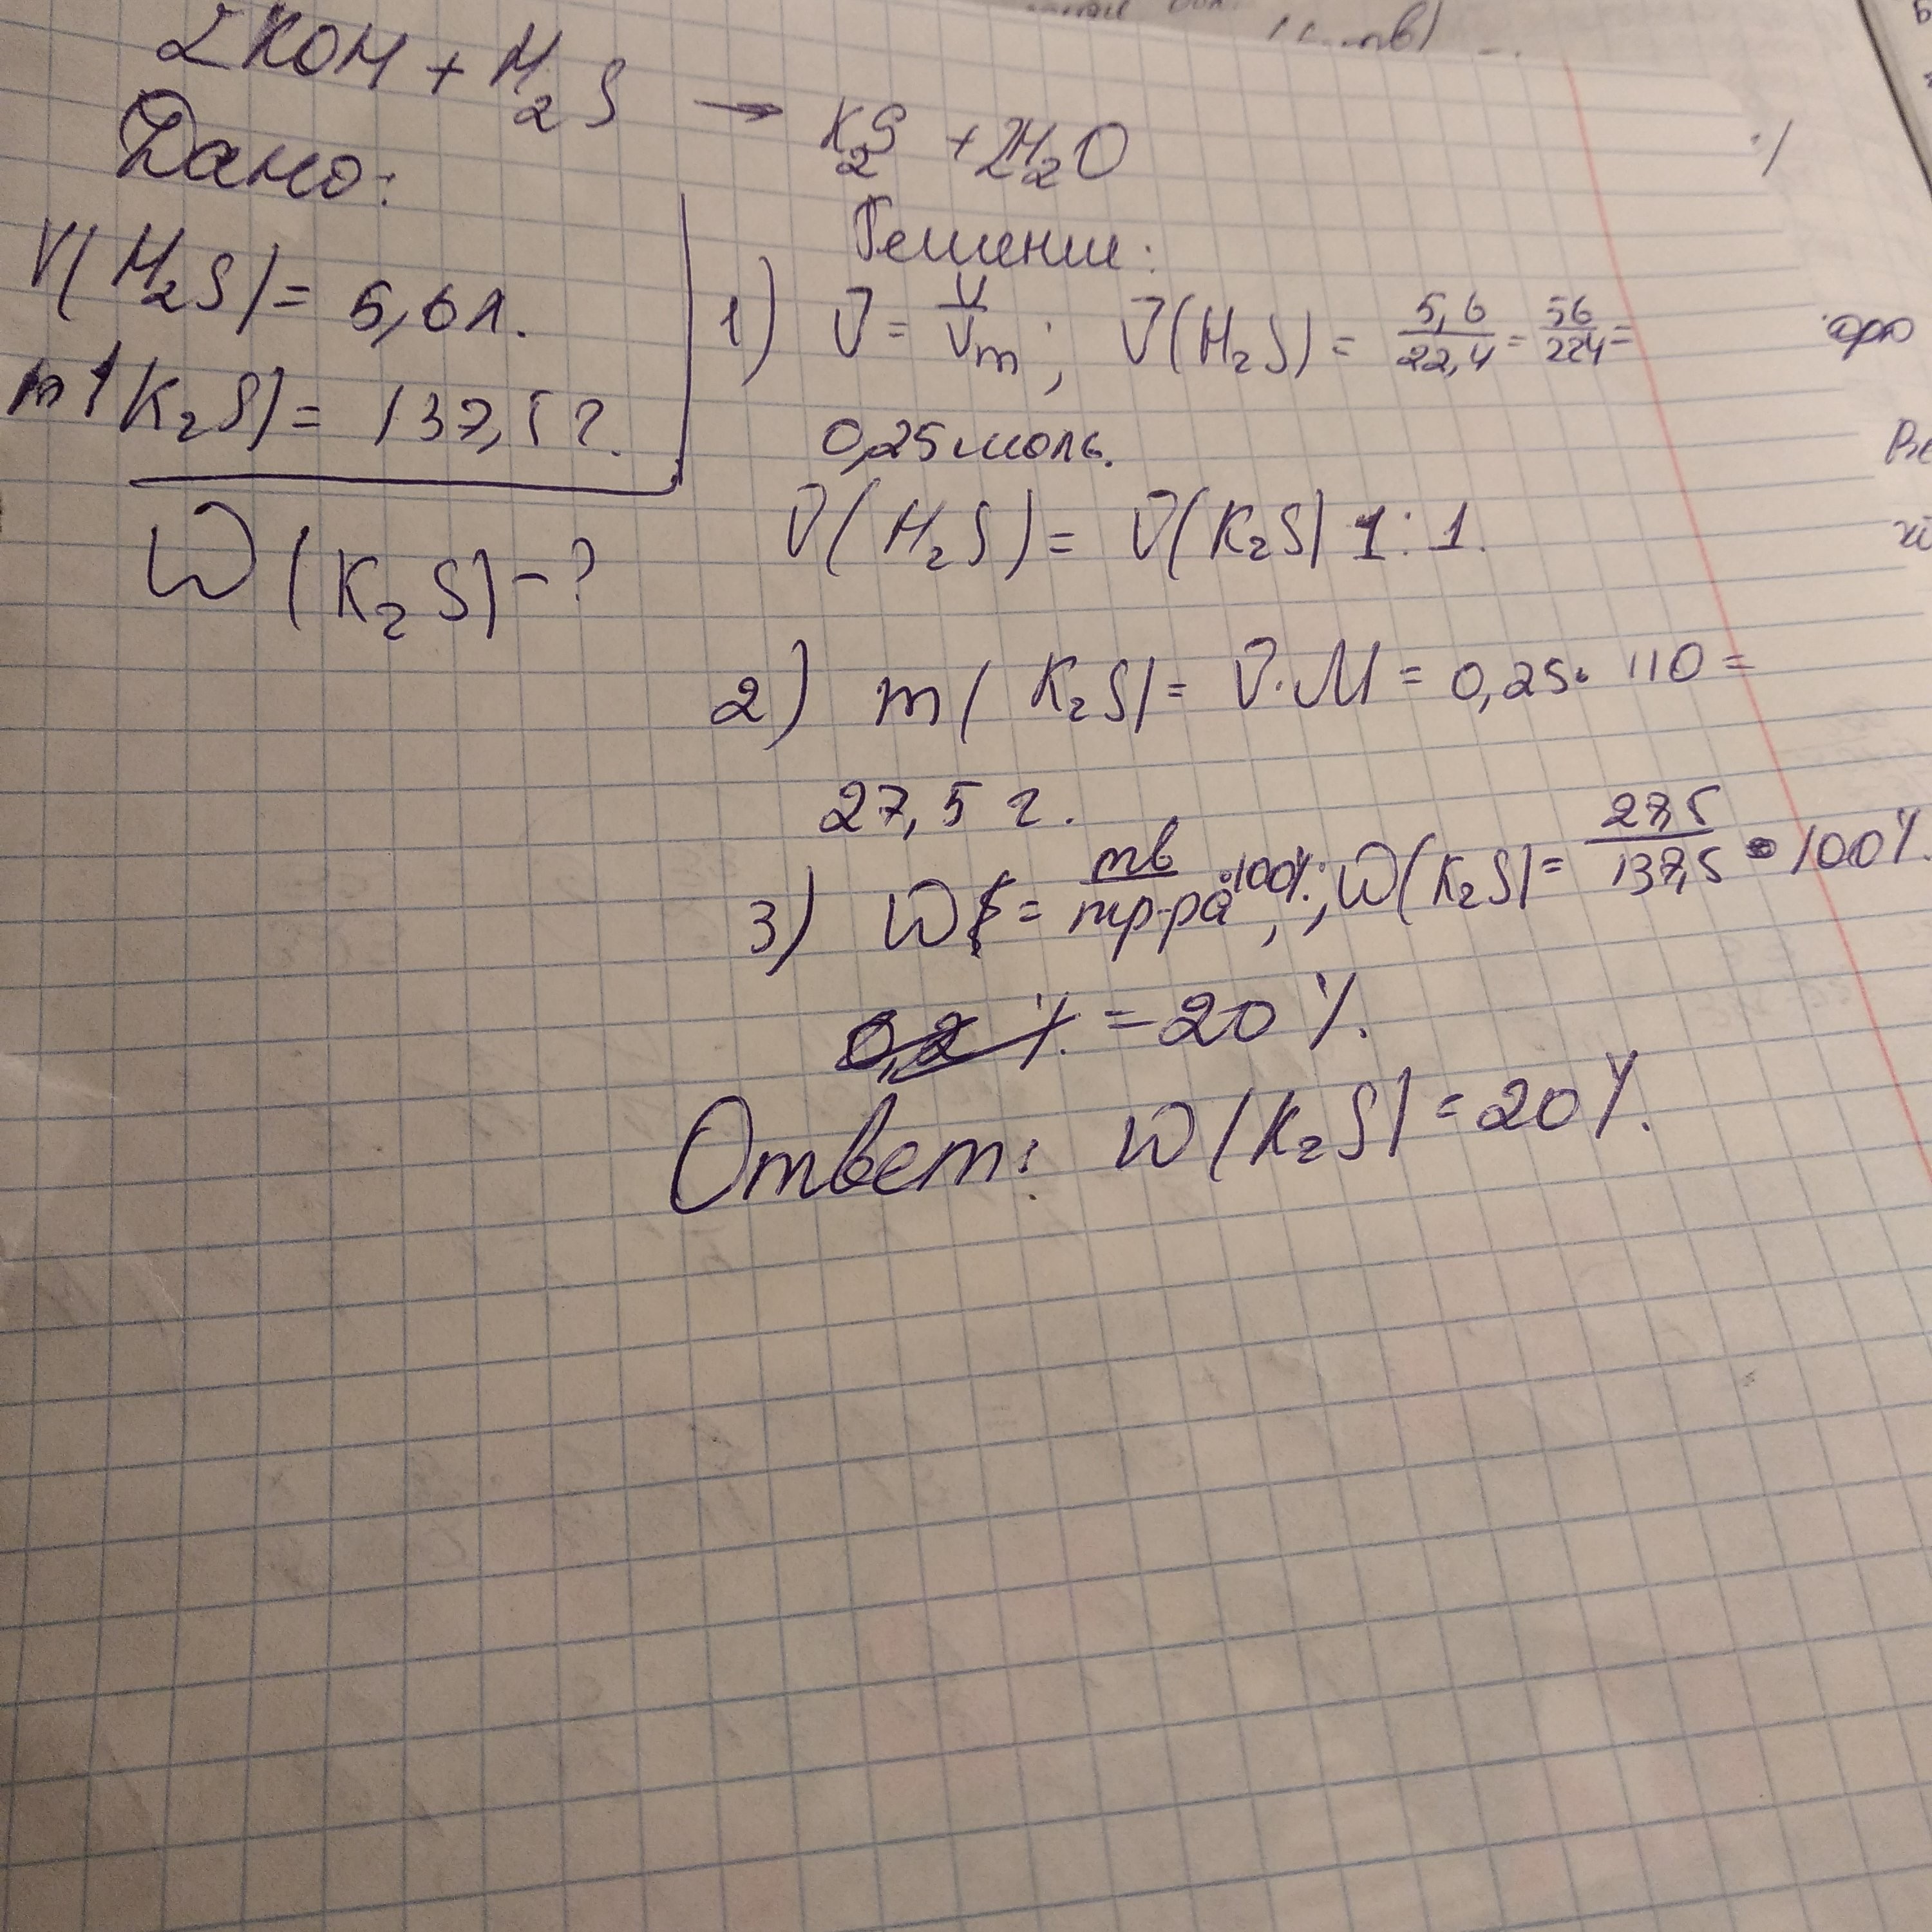 2KOH + H₂S → K₂S + 2H₂O
Дано:
V(H₂S) = 5,6 л.
m(K₂S) = 137,5 г.
W(K₂S) - ?
Решение:
1) ν = V/Vm ; ν(H₂S) = 5,6/22,4 = 56/224 =
0,25 моль.
ν(H₂S) = ν(K₂S) 1:1.
2) m(K₂S) = ν·M = 0,25·110 =
27,5 г.
3) W = mв/mр-ра ·100%; W(K₂S) = 27,5/137,5 · 100%
0,2 % = 20 %.
Ответ: W(K₂S) = 20%.